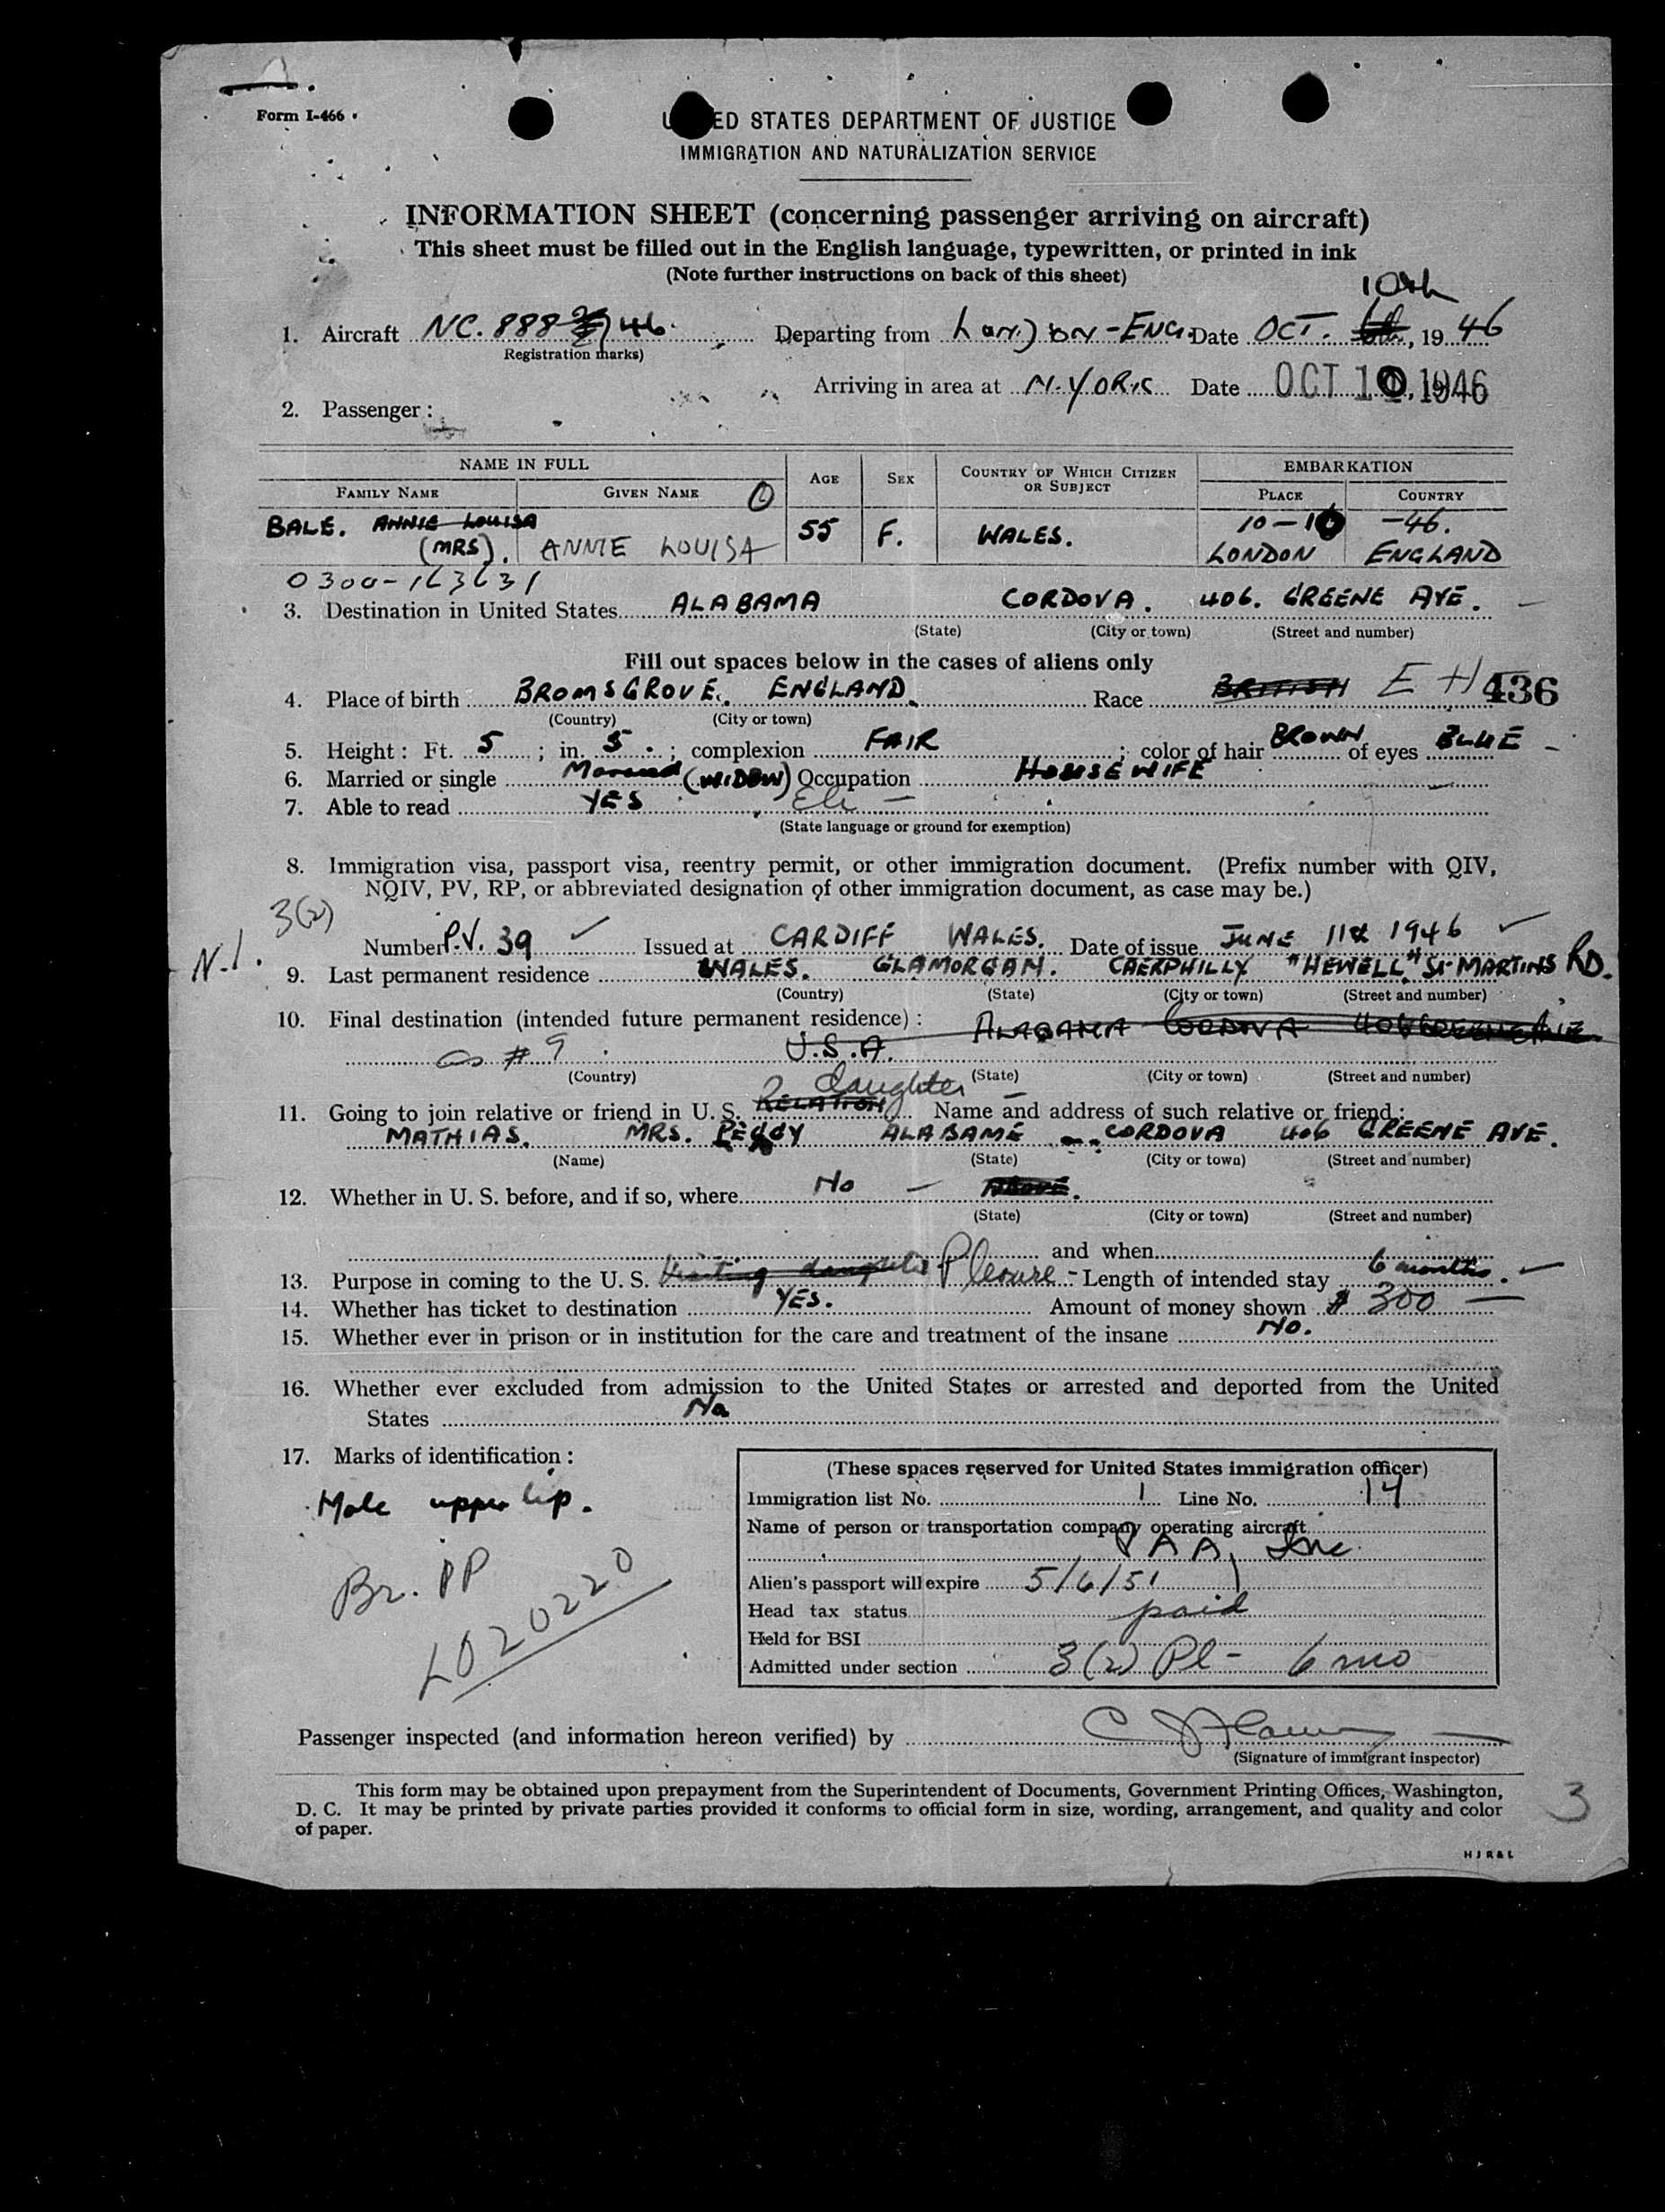 Form I-466
ED STATES DEPARTMENT OF JUSTICE
IMMIGRATION AND NATURALIZATION SERVICE
INFORMATION SHEET (concerning passenger arriving on aircraft)
This sheet must be filled out in the English language, typewritten, or printed in ink
(Note further instructions on back of this sheet)
10th
1. Aircraft NC. 888 46. Departing from London - ENG. Date OCT. , 1946
(Registration marks)
Arriving in area at N. YORK Date OCT 10, 1946
2. Passenger:
NAME IN FULL AGE SEX COUNTRY OF WHICH CITIZEN OR SUBJECT EMBARKATION
FAMILY NAME GIVEN NAME PLACE COUNTRY
BALE. ANNIE LOUISA 55 F. WALES. 10-10 -46.
(MRS). ANNIE LOUISA LONDON ENGLAND
0300-163631
3. Destination in United States ALABAMA CORDOVA. 406. GREENE AVE.
(State) (City or town) (Street and number)
Fill out spaces below in the cases of aliens only
4. Place of birth BROMSGROVE. ENGLAND. Race BRITISH E H 436
(Country) (City or town)
5. Height: Ft. 5; in. 5.; complexion FAIR; color of hair BROWN of eyes BLUE -
6. Married or single Married (WIDOW) Occupation HOUSEWIFE
7. Able to read YES
(State language or ground for exemption)
8. Immigration visa, passport visa, reentry permit, or other immigration document. (Prefix number with QIV,
NQIV, PV, RP, or abbreviated designation of other immigration document, as case may be.)
3(2)
Number P.V. 39 Issued at CARDIFF WALES. Date of issue JUNE 11th 1946
N.I.
9. Last permanent residence WALES. GLAMORGAN. CAERPHILLY "HEWELL" St MARTINS RD.
(Country) (State) (City or town) (Street and number)
10. Final destination (intended future permanent residence): ALABAMA CORDOVA 406 GREENE AVE
as # 9 U.S.A.
(Country) (State) (City or town) (Street and number)
daughter
11. Going to join relative or friend in U. S. RELATION Name and address of such relative or friend:
MATHIAS. MRS. PEGGY ALABAME CORDOVA 406 GREENE AVE.
(Name) (State) (City or town) (Street and number)
12. Whether in U. S. before, and if so, where No - ABOVE.
(State) (City or town) (Street and number)
and when
13. Purpose in coming to the U. S. Visiting daughter Pleasure - Length of intended stay 6 months.
14. Whether has ticket to destination YES. Amount of money shown $ 300
15. Whether ever in prison or in institution for the care and treatment of the insane No.
16. Whether ever excluded from admission to the United States or arrested and deported from the United
States No
17. Marks of identification:
Mole upper lip.
Br. PP
L020220
(These spaces reserved for United States immigration officer)
Immigration list No. 1 Line No. 14
Name of person or transportation company operating aircraft
PAA, Inc.
Alien's passport will expire 5/6/51
Head tax status paid
Held for BSI
Admitted under section 3(2) Pl - 6 mo
Passenger inspected (and information hereon verified) by
(Signature of immigrant inspector)
This form may be obtained upon prepayment from the Superintendent of Documents, Government Printing Offices, Washington,
D. C. It may be printed by private parties provided it conforms to official form in size, wording, arrangement, and quality and color
of paper.
3
H J R & L